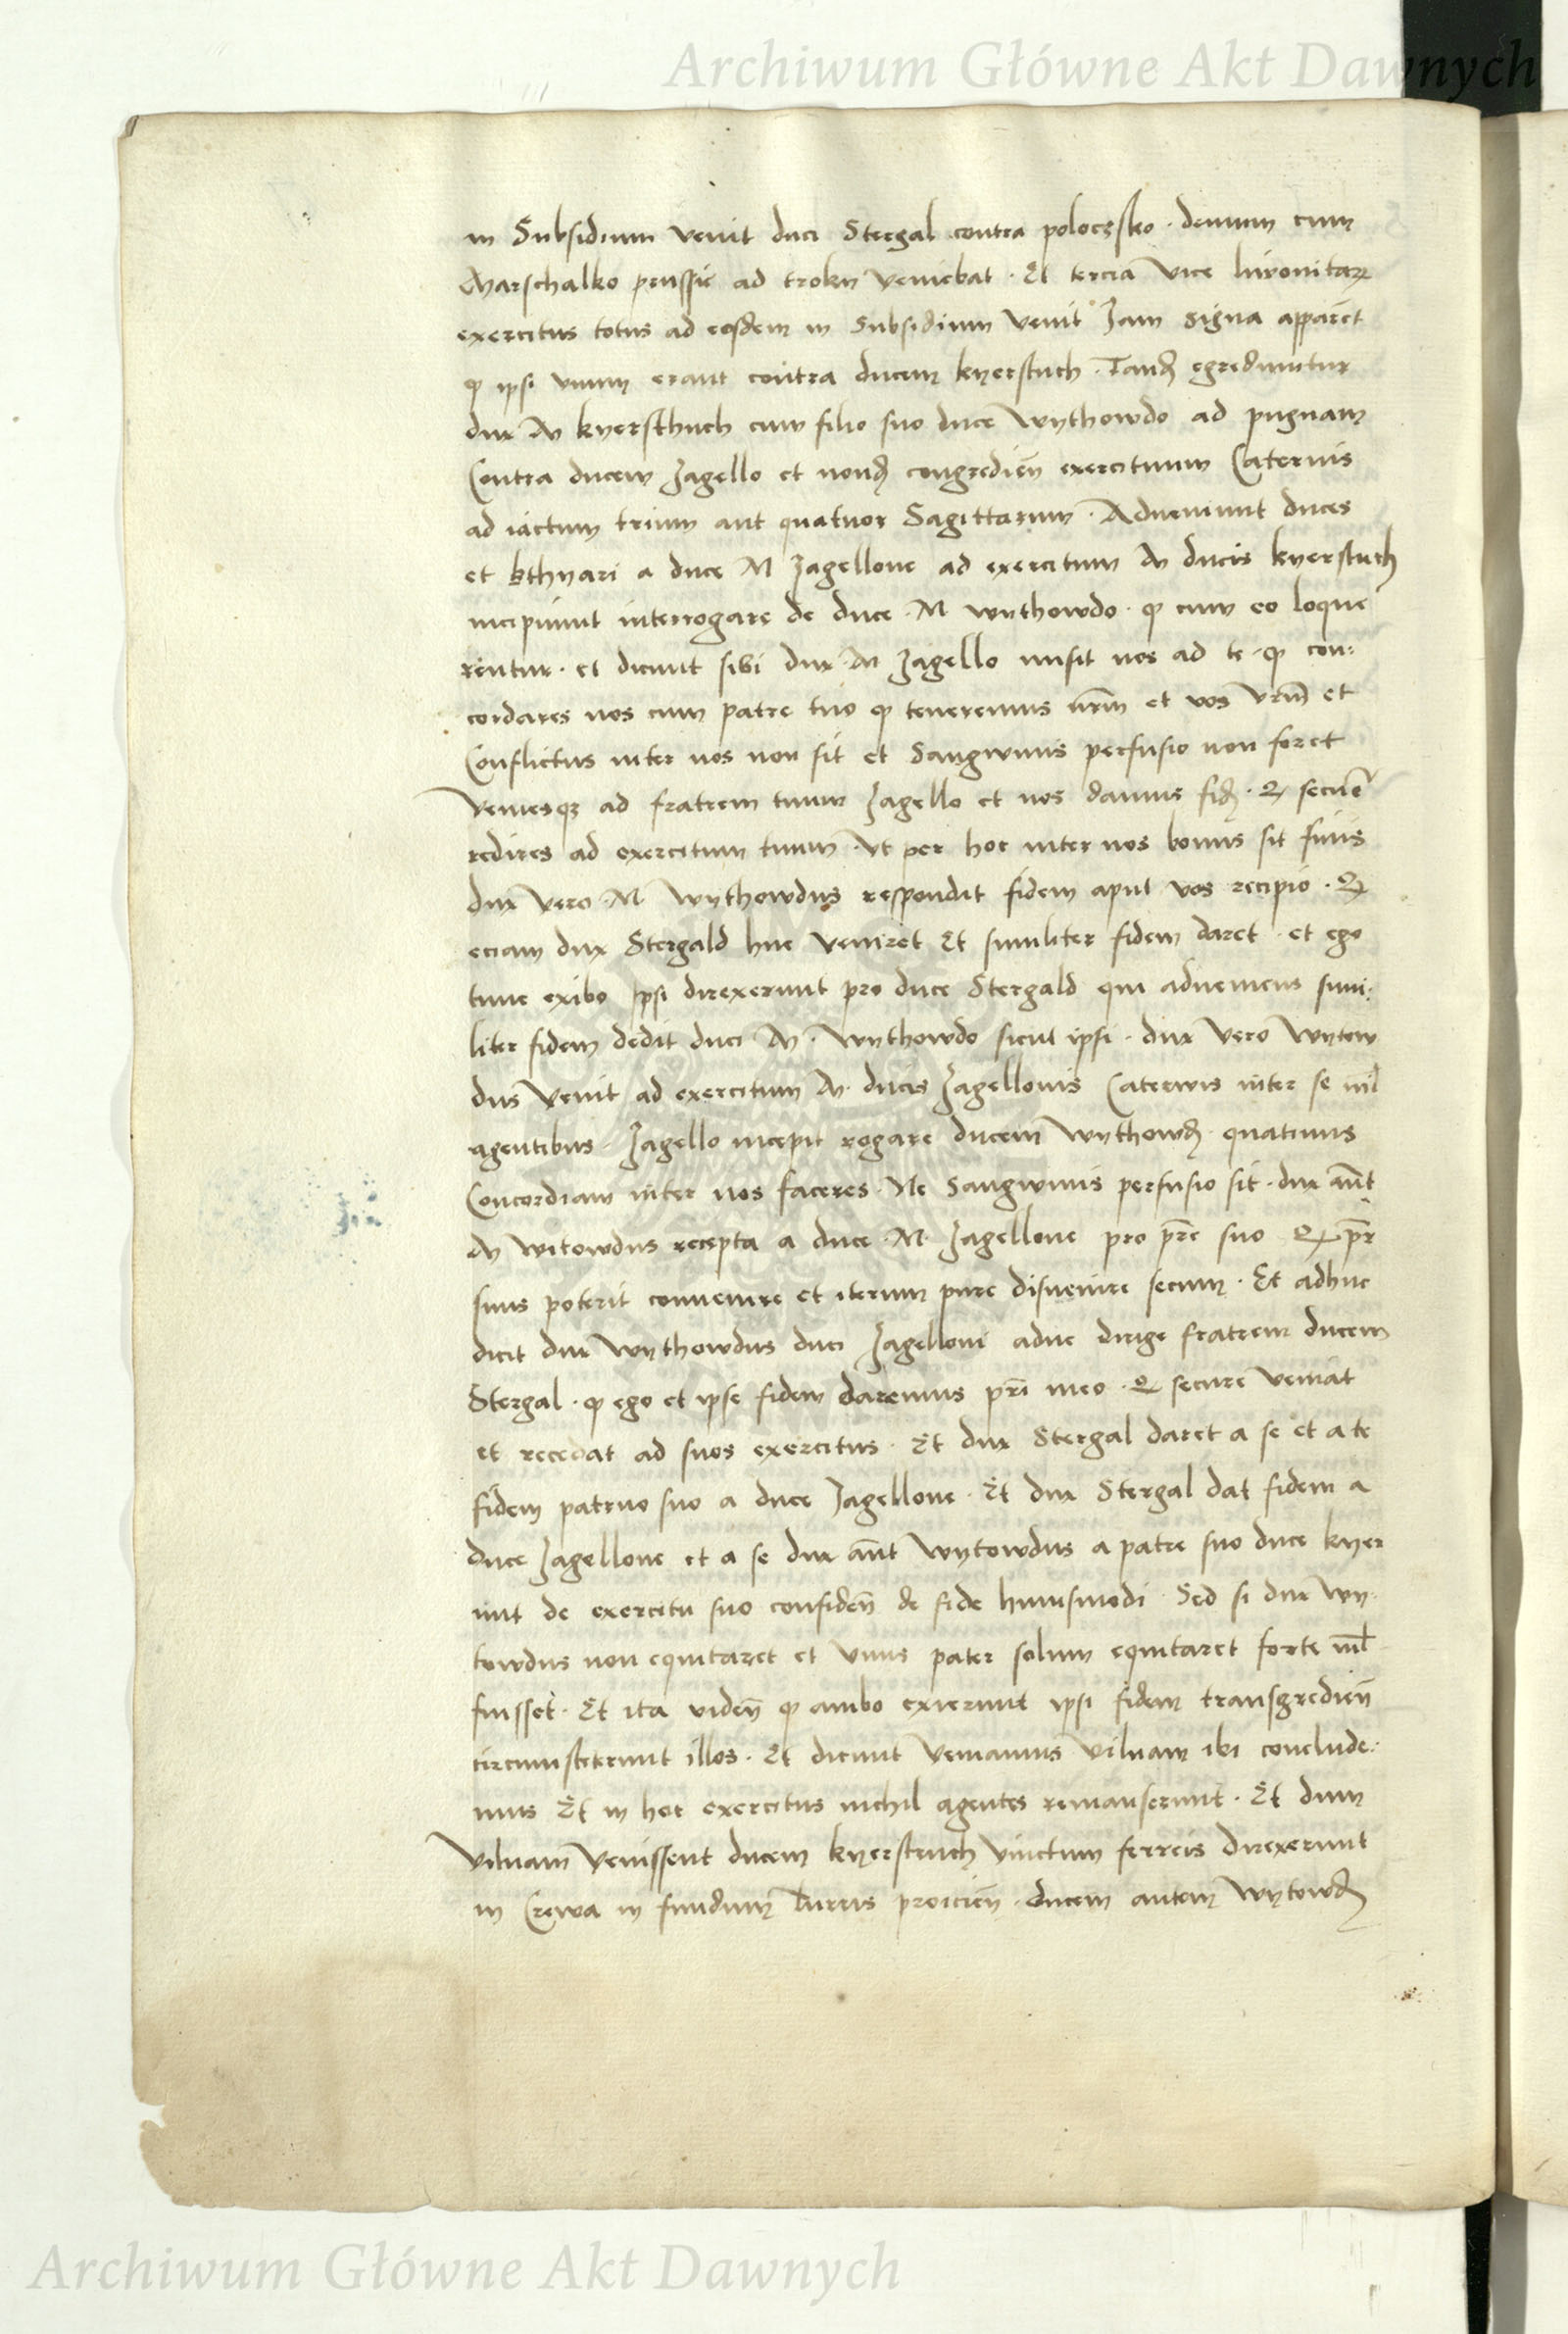 Archiwum Główne Akt Dawnych
in Subsidium venit duci Stergal contra poloczsko · demum cum
Marschalko prussie ad trokn veniebat · Et tercia vice livonitaꝝ
exercitus totus ad eosdem in subsidium venit Jam signa apparēt
ꝙ ipsi vnum erant contra ducem kyerstuth · Tandē egrediuntur
dux M kyersthuth cum filio suo duce Wythowdo ad pugnam
Contra ducem Jagello et nondū congredieñ exercituum Caternis
ad iactum trium aut quatuor Sagittarum · Adueniunt duces
et kthyari a duce M Jagellone ad exercitum M ducis kyerstuth
incipiunt interrogare de duce · M wythowdo · ꝙ cum eo loque
rentur · et dicunt sibi dux M Jagello misit nos ad te · ꝙ con:
cordares nos cum patre tuo ꝙ teneremus nr̄m et vos vr̄m et
Conflictus inter nos non sit et Sangwinis perfusio non foret
Veniesqꝫ ad fratrem tuum Jagello et nos damus fidē · ꝙ secure
redires ad exercitum tuum · Vt per hoc inter nos bonus sit finis
dux vero M Wythowdus respondit fidem aput vos recipio · ꝙ
eciam dux Stergald huc veniret Et similiter fidem daret · et ego
tunc exibo Ipsi direxerunt pro duce Stergald qui adueniens simi:
liter fidem dedit duci M · Wythowdo sicut ipsi · dux vero Wytow
dus venit ad exercitum M · ducis Jagellonis Caterwis inter se nil
agentibus · Jagello incepit rogare ducem Wythowdū · quatinus
Concordiam inter nos faceres · Ne Sangwinis perfusio sit · dux aūt
M witowdus recepta a duce · M · Jagellone pro pr̄e suo ꝙ pr̄
suus poterit conuenire et iterum pure disuenire secum · Et adhuc
dicit dux Wythowdus duci Jagelloni aduc dirige fratrem ducem
Stergal · ꝙ ego et ipse fidem daremus pr̄i meo · ꝙ secure veniat
et recedat ad suos exercitus · Et dux Stergal daret a se et a te
fidem patruo suo a duce Jagellone · Et dux Stergal dat fidem a
duce Jagellone et a se dux aūt Wytowdus a patre suo duce kyer
iuit de exercitu suo confideñ de fide huiusmodi · Sed si dux Wy·
towdus non equitaret et vnus pater solum equitaret forte nil
fuisset · Et ita videñ ꝙ ambo exierunt ipsi fidem transgredieñ
circumsteterunt illos · Et dicunt veniamus vilnam ibi conclude:
mus Et in hoc exercitus nichil agentes remanserunt · Et dum
Vilnam venissent ducem kyerstuth vinctum ferreis direxerunt
in Crewa in fundum Turris proicieñ · ducem autem Wytowdū
Archiwum Główne Akt Dawnych